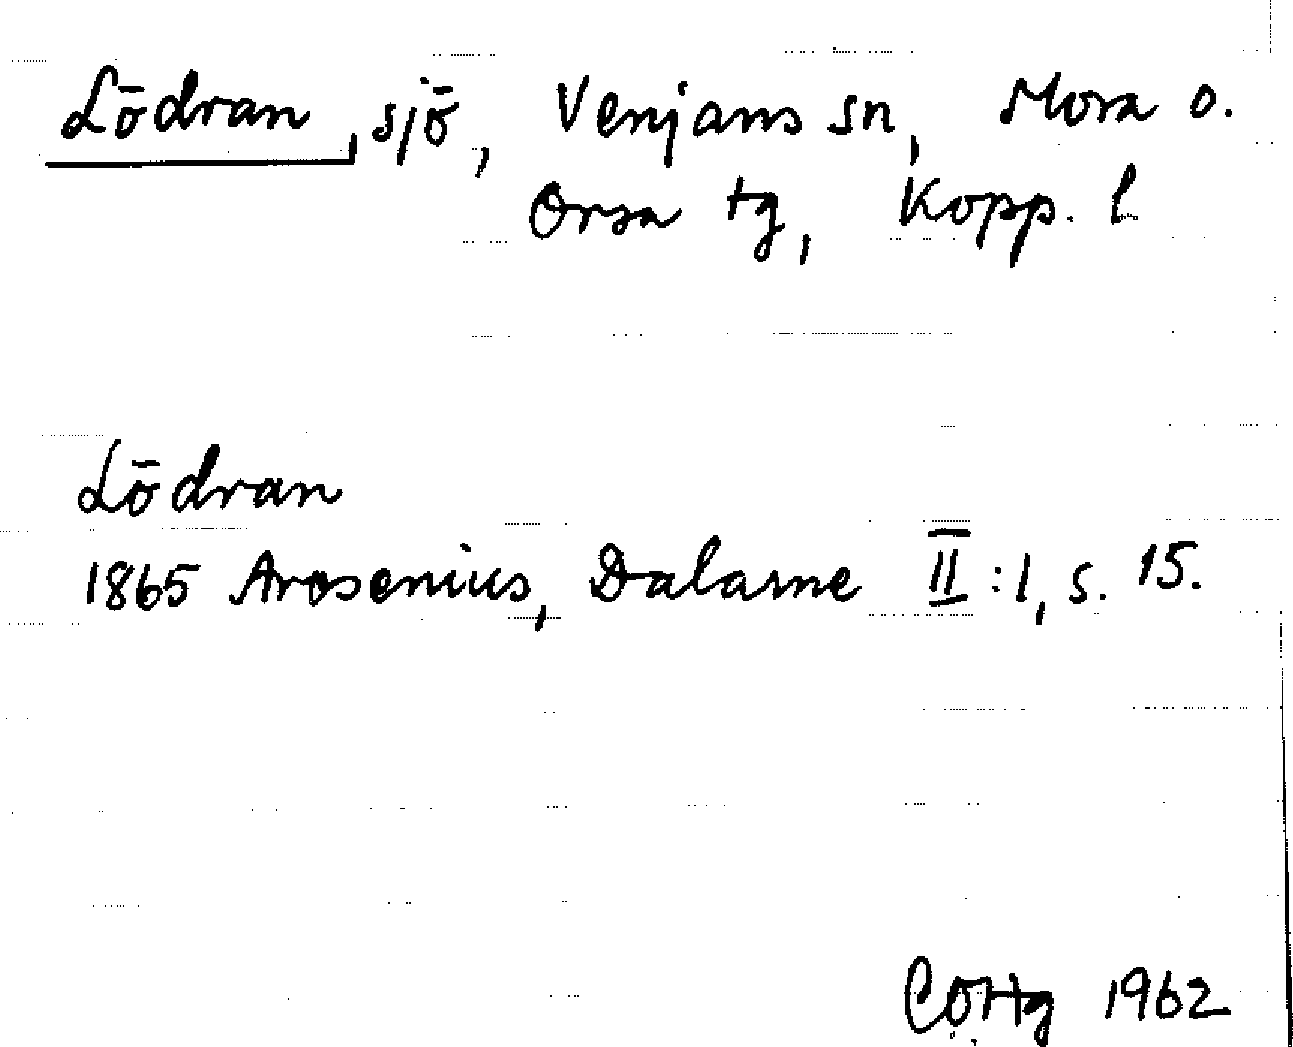 Lödran, sjö, Venjans sn, Mora o.
Orsa tg, Kopp. l
Lödran
1865 Arosenius, Dalarne II:1, s. 15.
1962